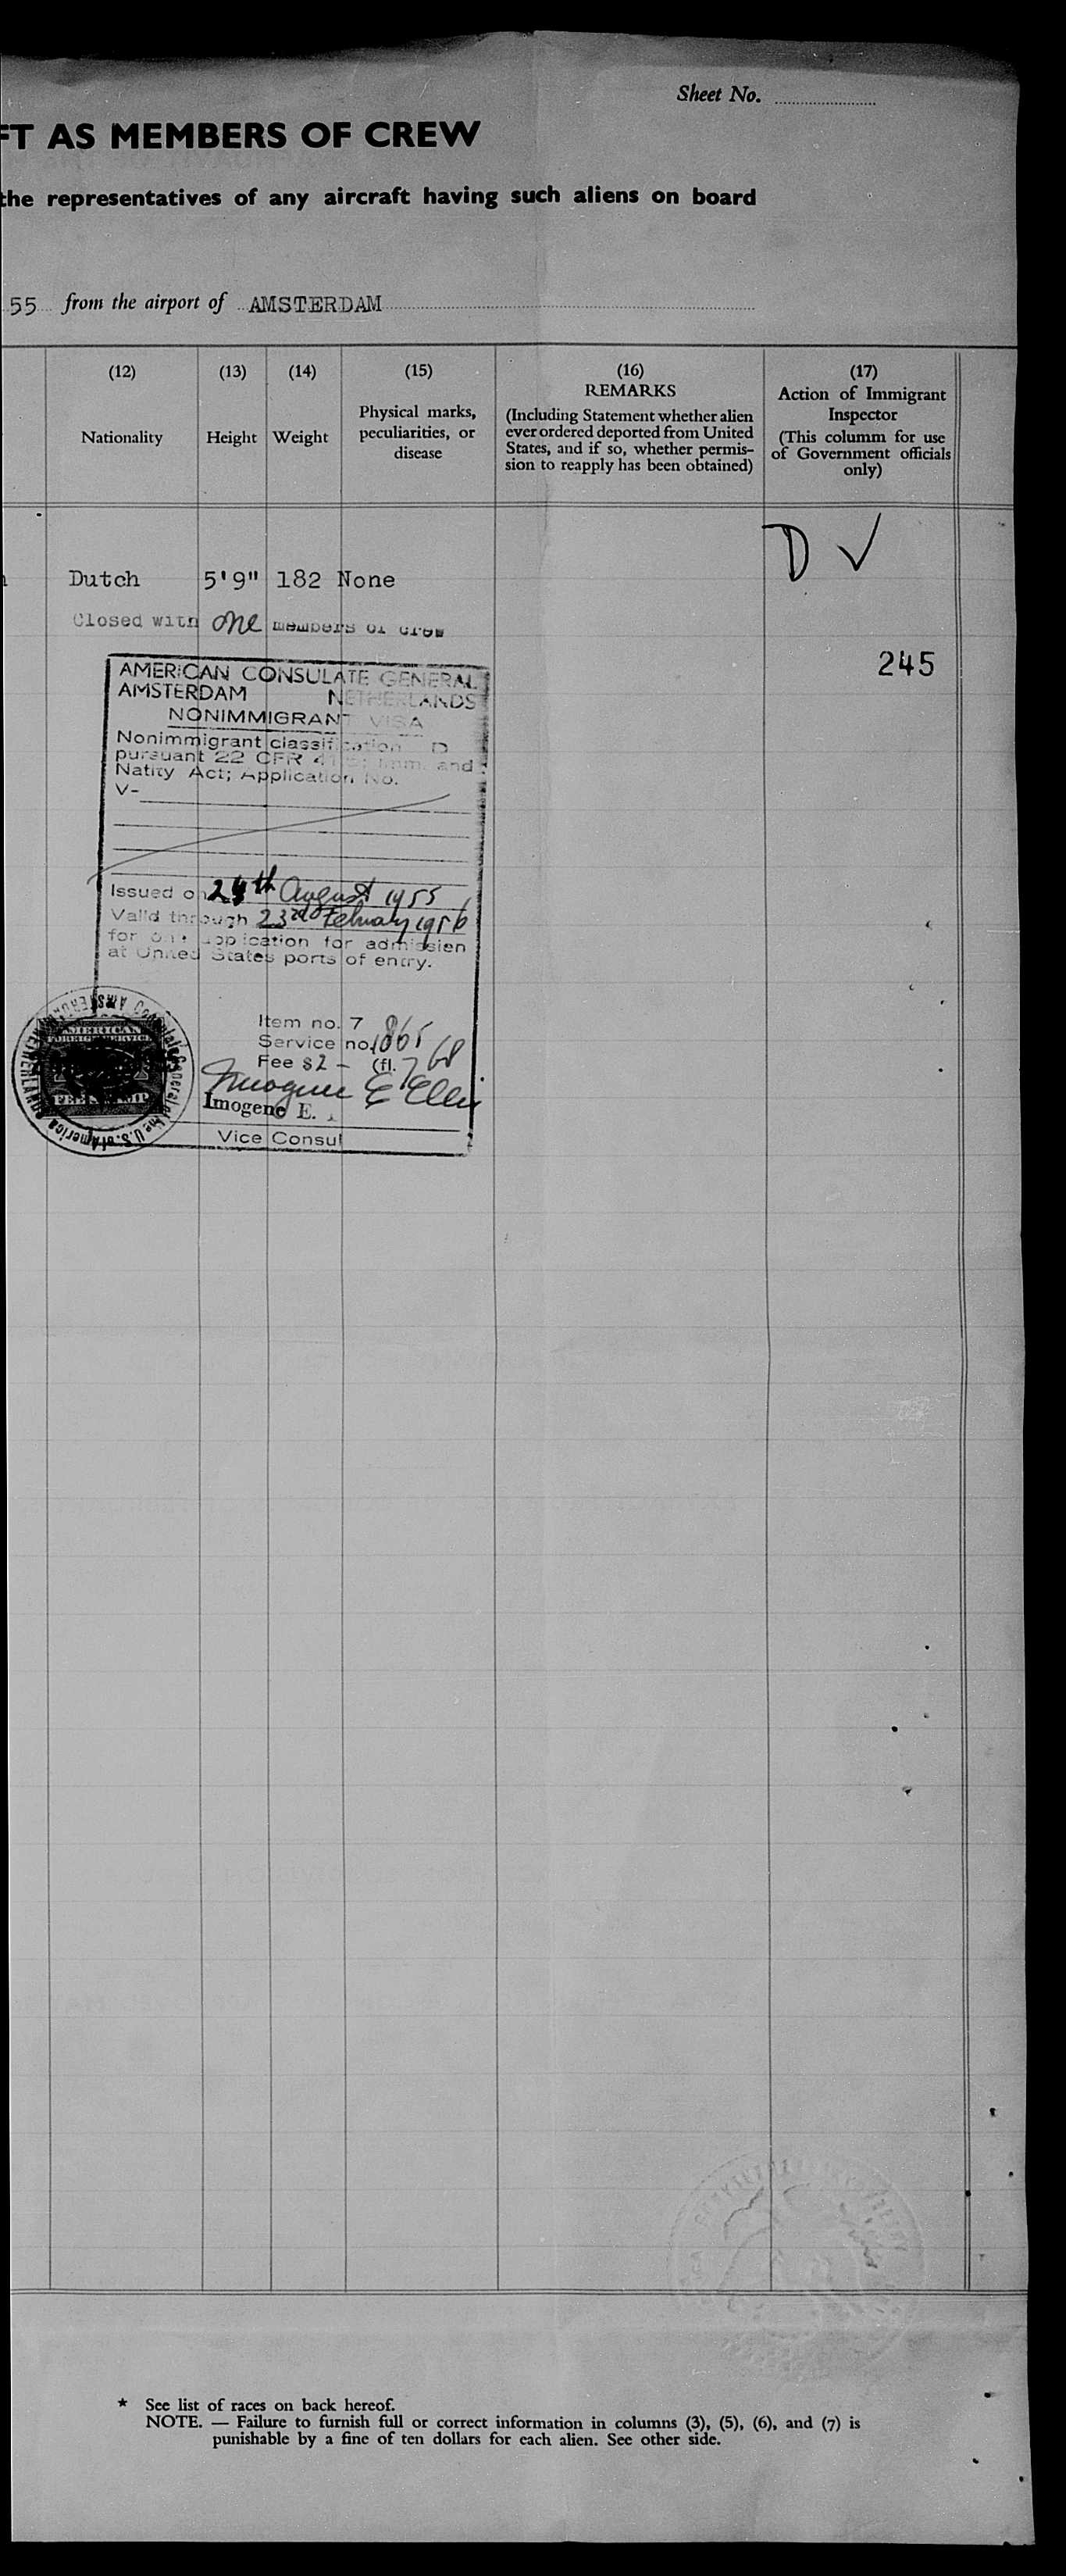 Sheet No.
FT AS MEMBERS OF CREW
the representatives of any aircraft having such aliens on board
55 from the airport of AMSTERDAM
(12) (13) (14) (15) (16) (17)
Nationality Height Weight Physical marks, peculiarities, or disease
REMARKS
(Including Statement whether alien
ever ordered deported from United
States, and if so, whether permis-
sion to reapply has been obtained)
Action of Immigrant
Inspector
(This columm for use
of Government officials
only)
D ✓
Dutch 5'9" 182 None
Closed with one members of crew
245
AMERICAN CONSULATE GENERAL
AMSTERDAM NETHERLANDS
NONIMMIGRANT VISA
Nonimmigrant classification D
pursuant 22 CFR Imm. and
Natity Act; Application No.
V-
Issued on 24th August 1955
Valid through 23rd February 1956
for one application for admission
at United States ports of entry.
Item no. 7
Service no. 1865
Fee $2- (fl. 7 68
Imogene E Ellis
Imogene E.
Vice Consul
AMERICAN
FOREIGN SERVICE
FEE STAMP
Consulate General of the U.S. of America
AMSTERDAM NETHERLANDS
* See list of races on back hereof.
NOTE. — Failure to furnish full or correct information in columns (3), (5), (6), and (7) is
punishable by a fine of ten dollars for each alien. See other side.